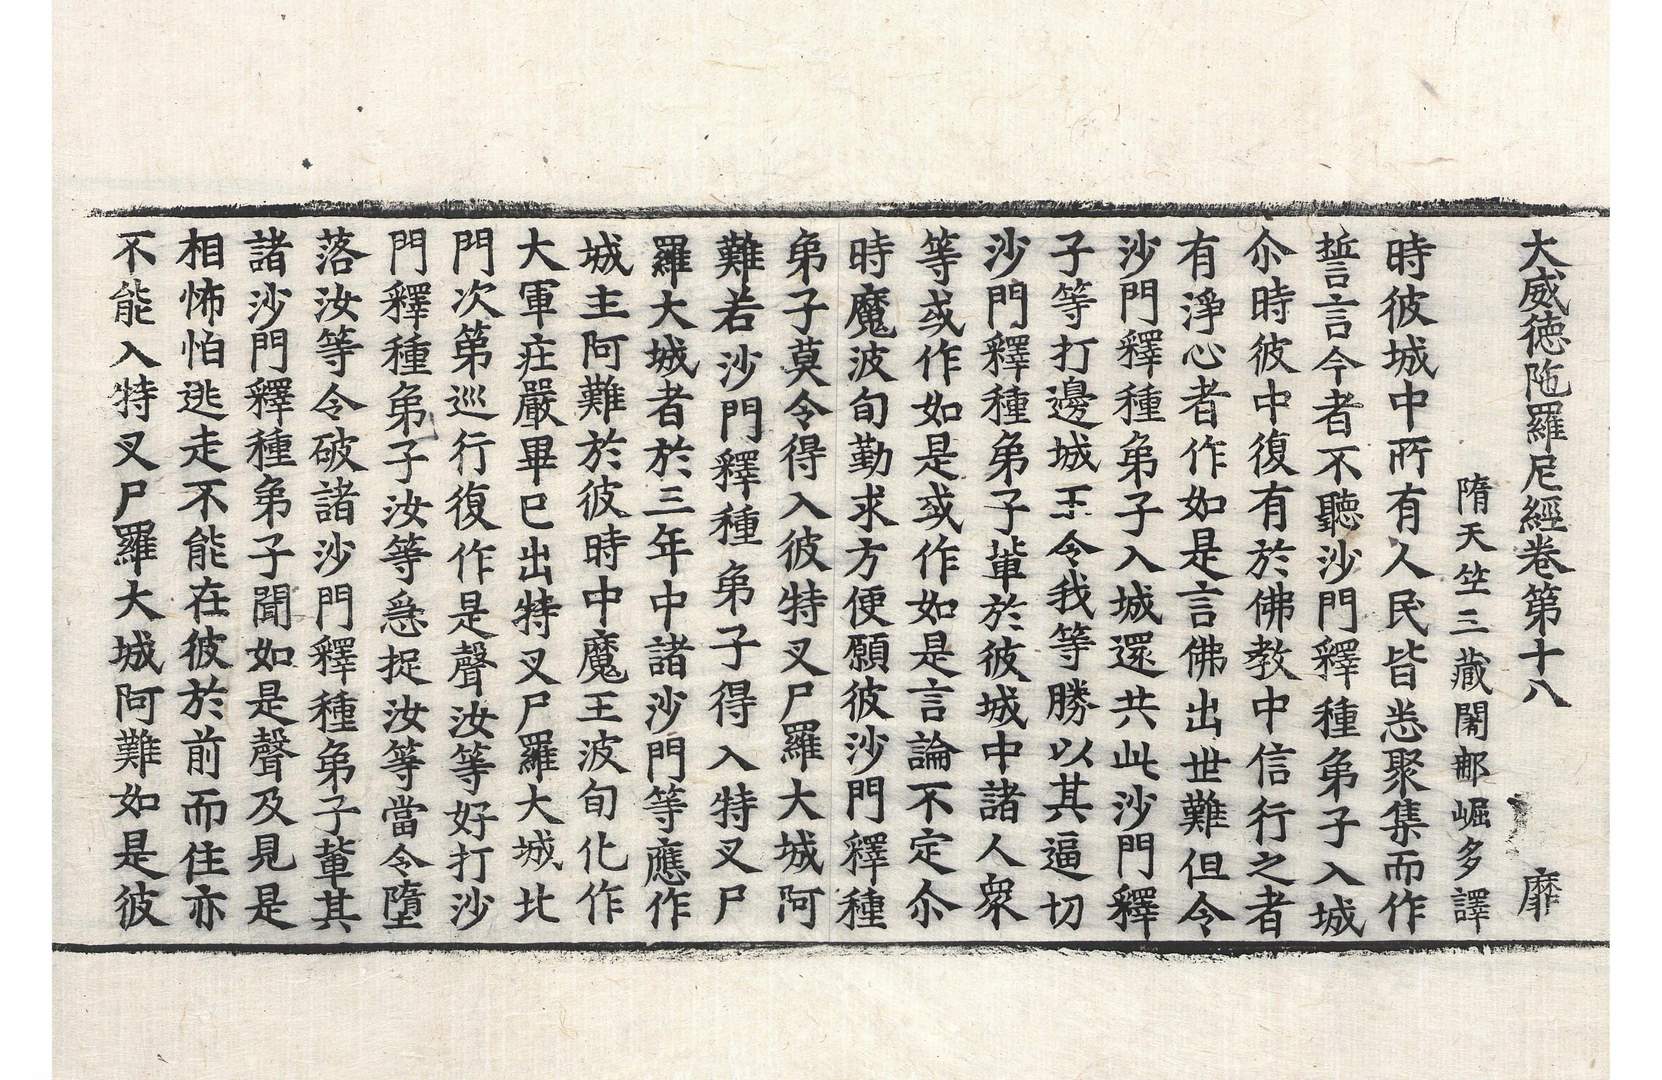 大威德陁羅尼經卷第十八　靡
隋天竺三藏闍那崛多譯
時彼城中所有人民皆悉聚集而作
誓言言今者不聽沙門釋種弟子入城
尒時彼中復有於佛教中信行之者
有淨心者作如是言佛出世難但令
沙門釋種弟子入城還共此沙門釋
子等打邊城王令我等勝以其逼切
沙門釋種弟子輩於彼城中諸人衆
等或作如是或作如是言論不定尒
時魔波旬勤求方便願彼沙門釋種
弟子莫令得入彼特叉尸羅大城阿
難若沙門釋種弟子得入特叉尸
羅大城者於三年中諸沙門等應作
城主阿難於彼時中魔王波旬化作
大軍庄嚴畢已出特叉尸羅大城北
門次第巡行復作是聲汝等好打沙
門釋種弟子汝等急捉汝等當令墮
落汝等令破諸沙門釋種弟子輩其
諸沙門釋種弟子聞如是聲及見是
相怖怕迯走不能在彼於前而住亦
不能入特叉尸羅大城阿難如是彼